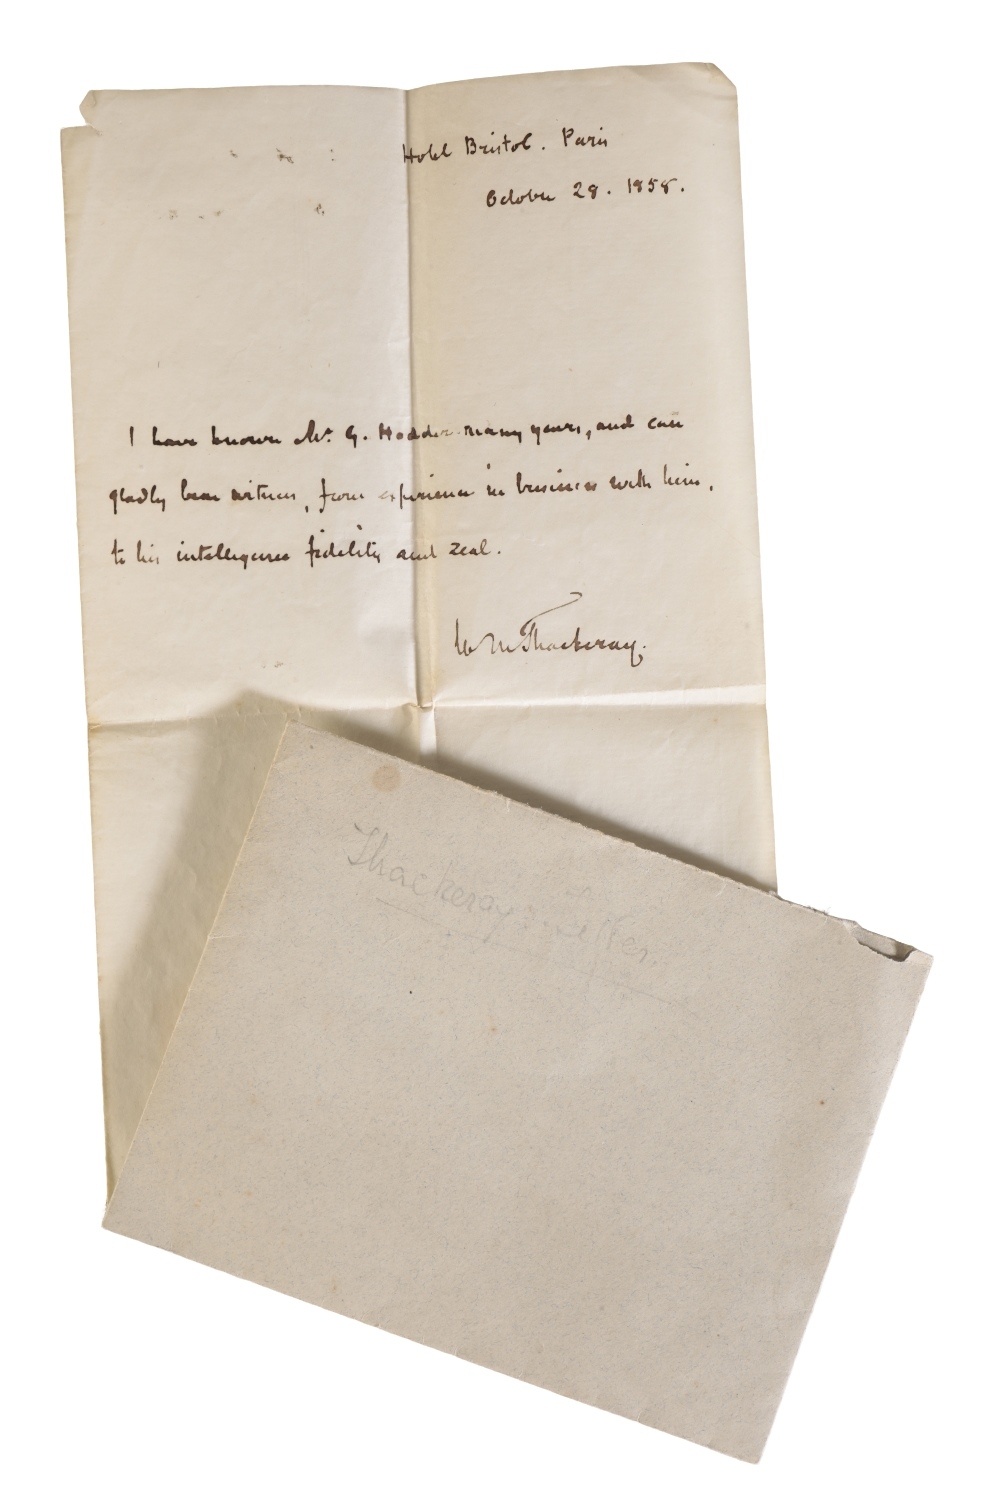 Hotel Bristol. Paris
October 28. 1858.
I have known Mr. G. Hodder many years, and can
gladly bear witness, from experience in business with him,
to his intelligence fidelity and zeal.
W M Thackeray.
Thackeray's Letter.